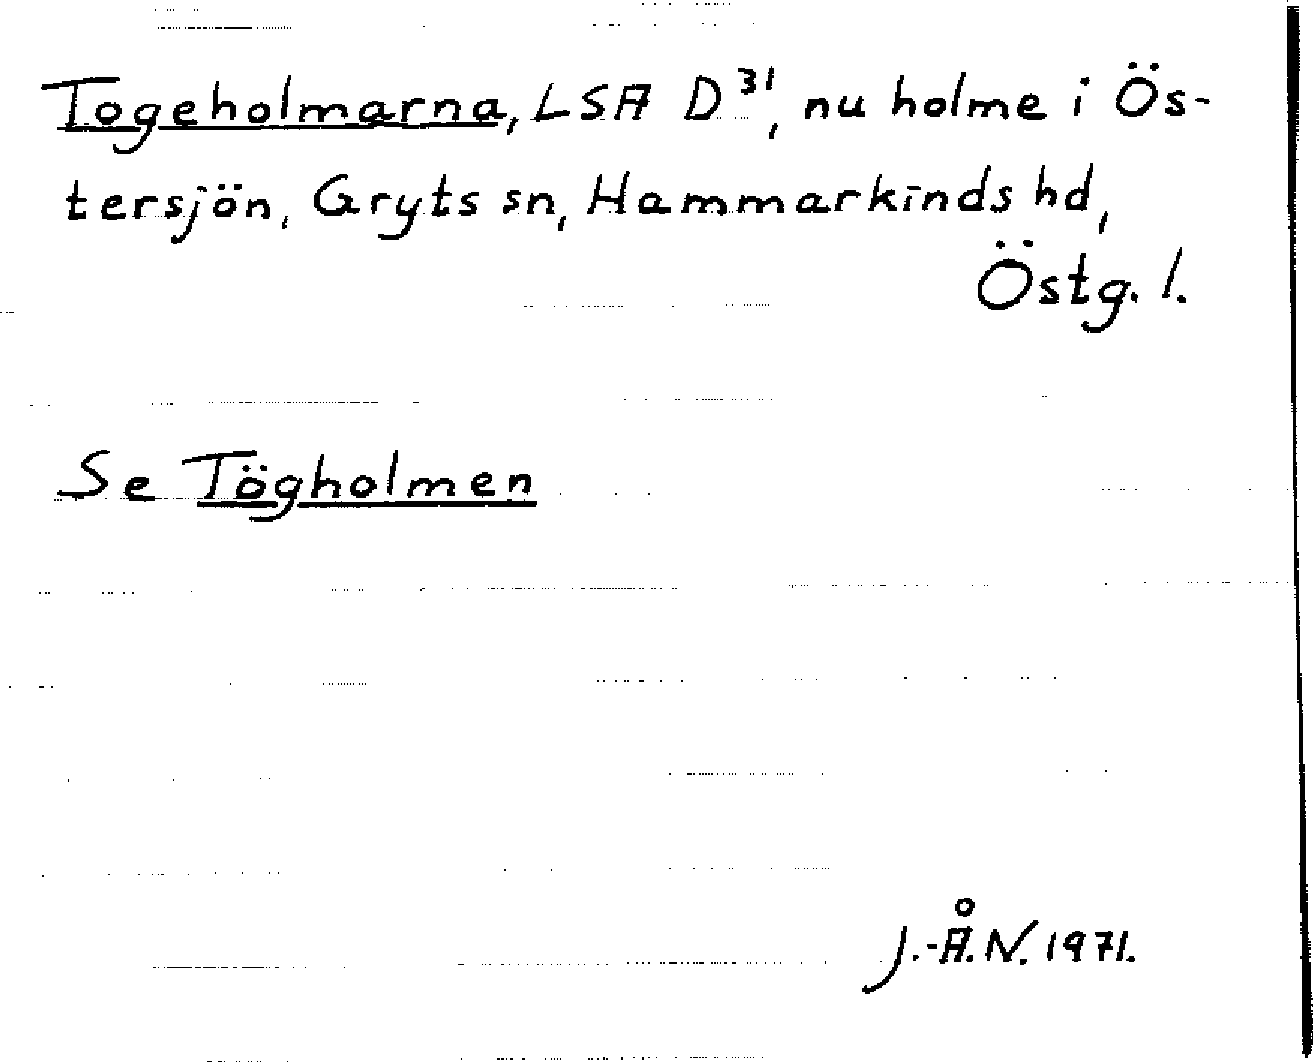 Togeholmarna, LSA D³¹, nu holme i Ös-
tersjön, Gryts sn, Hammarkinds hd,
Östg. l.
Se Tögholmen
J.-Å. N. 1971.